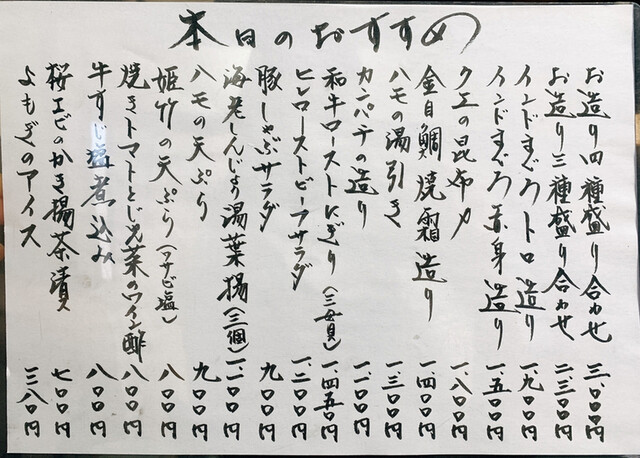 本日のおすすめ
お造り四種盛り合わせ 三、〇〇〇円
お造り三種盛り合わせ 二、三〇〇円
インドまぐろトロ造り 一、九〇〇円
インドまぐろ赤身造り 一、五〇〇円
クエの昆布〆 一、八〇〇円
金目鯛焼霜造り 一、四〇〇円
ハモの湯引き 一、三〇〇円
カンパチの造り
和牛ローストにぎり(三貫) 一、四五〇円
ヒレローストビーフサラダ
豚しゃぶサラダ 九〇〇円
海老しんじょう湯葉揚(三個)
ハモの天ぷら 九〇〇円
姫竹の天ぷら(ワサビ塩) 八〇〇円
焼きトマトとじゅん菜のワイン酢 八〇〇円
牛すじ塩煮込み 八〇〇円
桜エビのかき揚茶漬 七〇〇円
よもぎのアイス 三八〇円